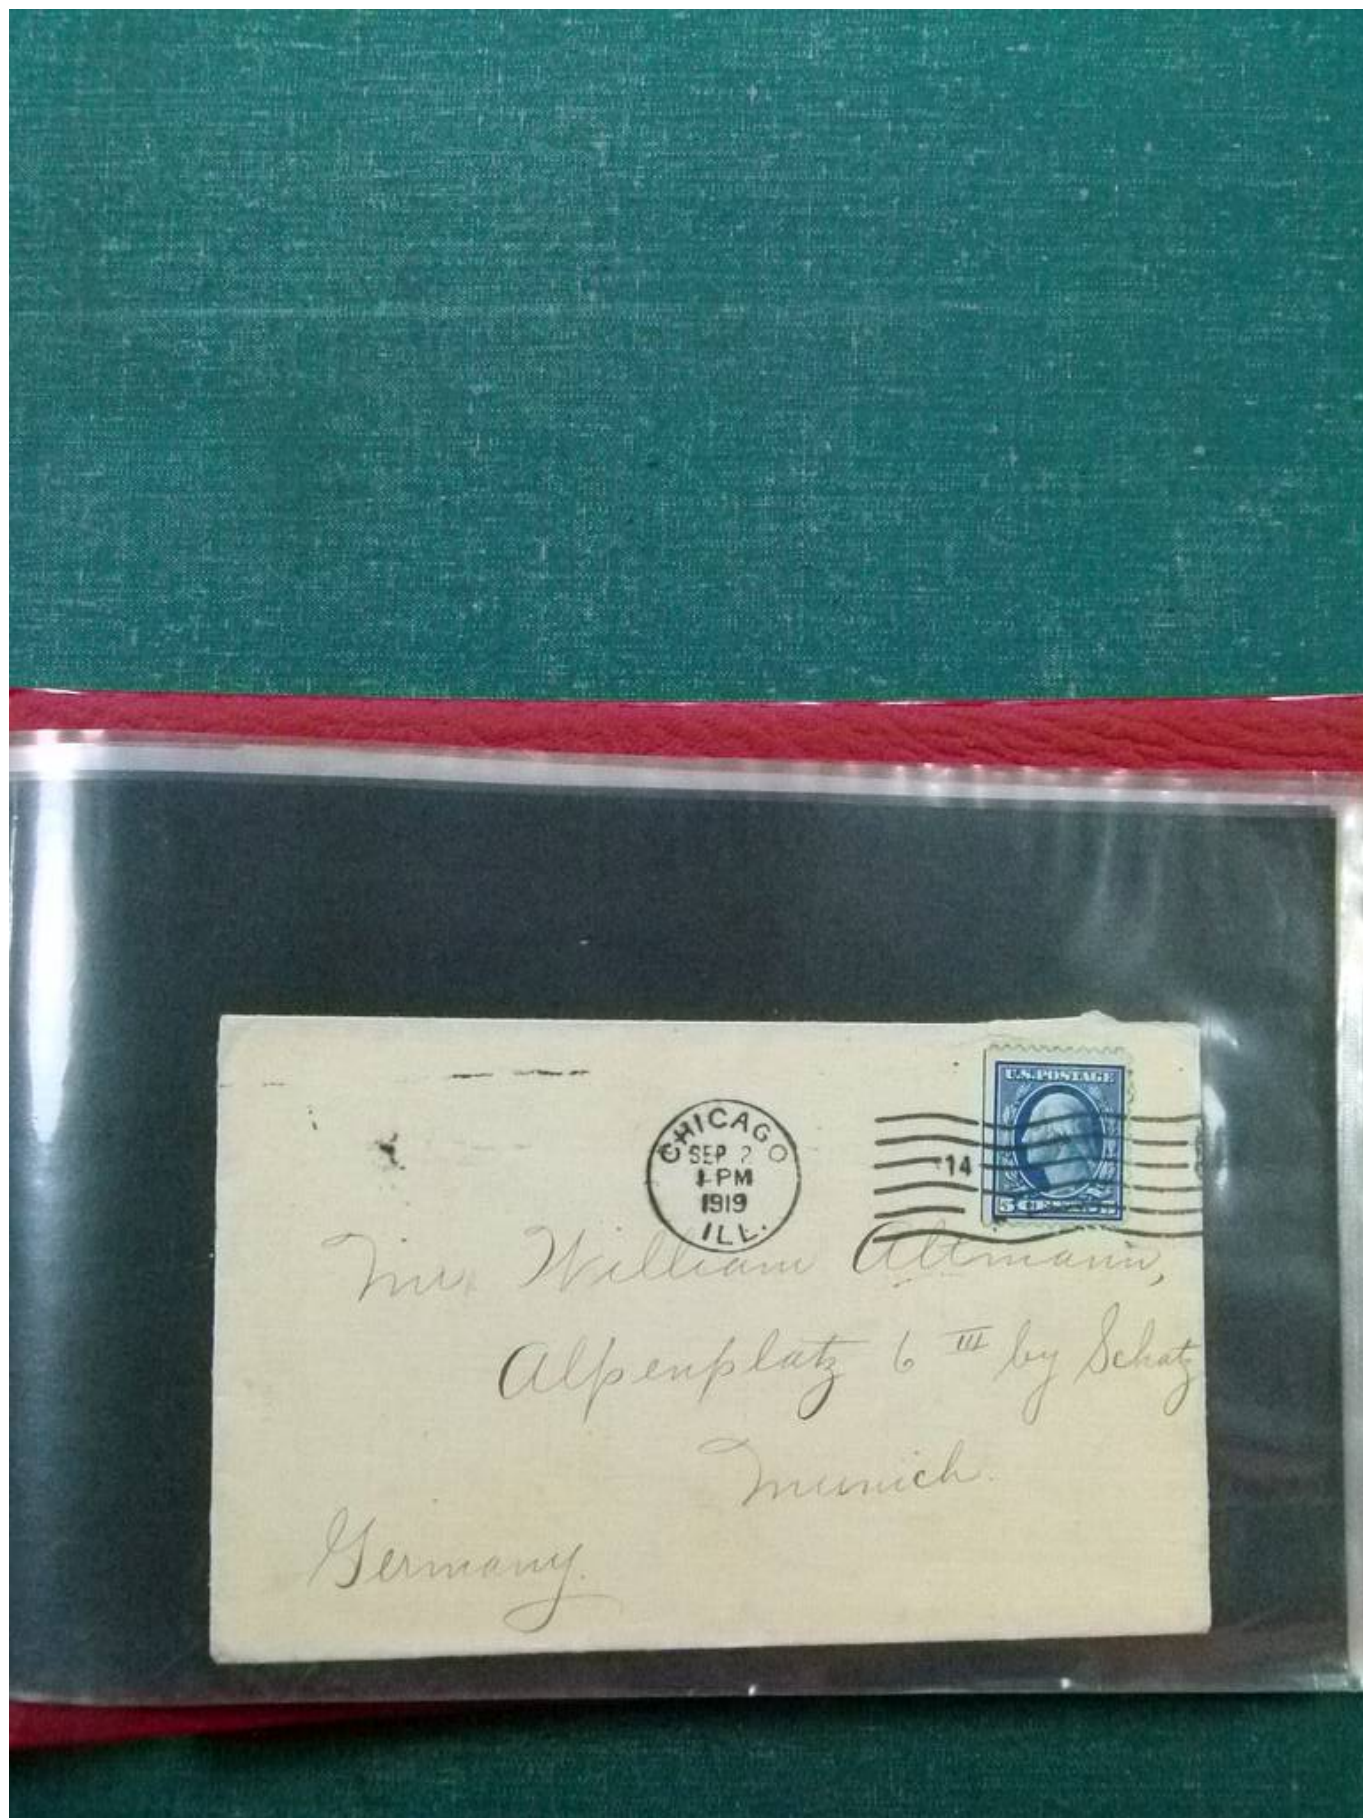 U.S. POSTAGE
CHICAGO
SEP 2
1 PM
1919
ILL.
14
Mr. William Altmann,
Alpenplatz 6 III by Schatz
Munich.
Germany.